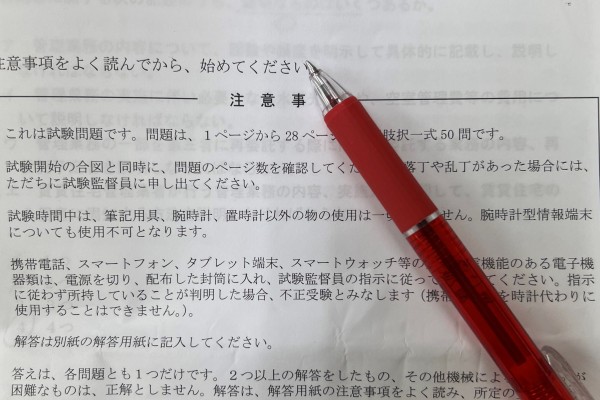 注意事項をよく読んでから、始めてください
注 意 事
これは試験問題です。問題は、1ページから28ペー 肢択一式50問です。
試験開始の合図と同時に、問題のページ数を確認してくだ 落丁や乱丁があった場合には、
ただちに試験監督員に申し出てください。
試験時間中は、筆記用具、腕時計、置時計以外の物の使用は一 せん。腕時計型情報端末
についても使用不可となります。
携帯電話、スマートフォン、タブレット端末、スマートウォッチ等の 機能のある電子機
器類は、電源を切り、配布した封筒に入れ、試験監督員の指示に従っ ください。指示
に従わず所持していることが判明した場合、不正受験とみなします(携帯 を時計代わりに
使用することはできません。)。
解答は別紙の解答用紙に記入してください。
答えは、各問題とも1つだけです。2つ以上の解答をしたもの、その他機械によ が
困難なものは、正解としません。解答は、解答用紙の注意事項をよく読み、所定の